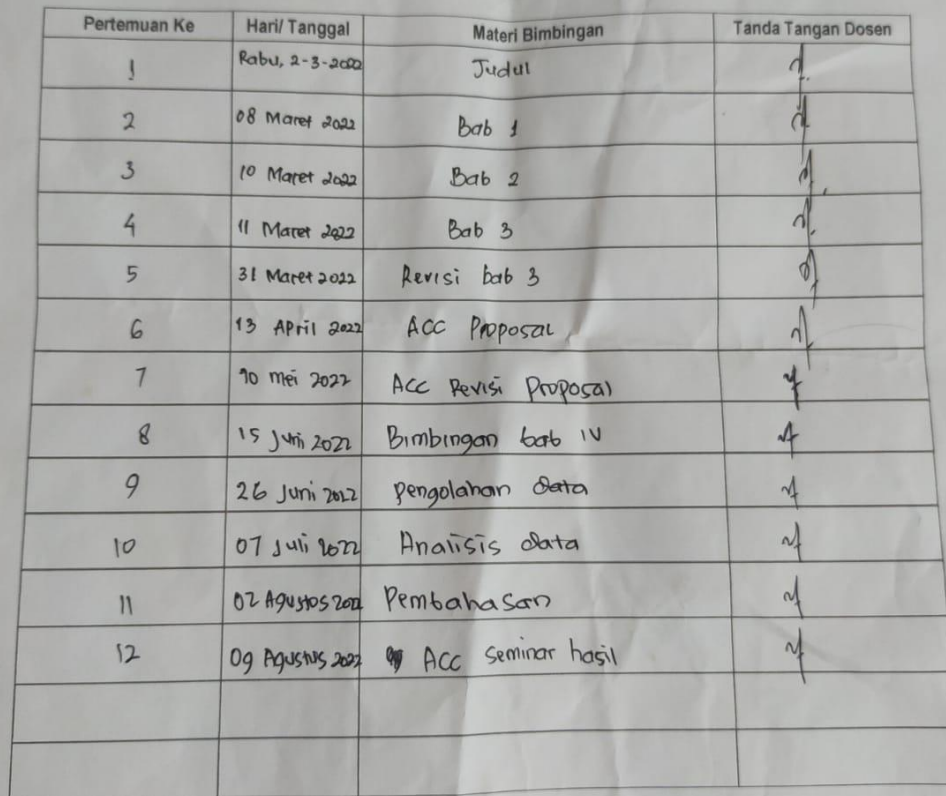 Pertemuan Ke Hari/ Tanggal Materi Bimbingan Tanda Tangan Dosen
1 Rabu, 2-3-2022 Judul
2 08 Maret 2022 Bab 1
3 10 Maret 2022 Bab 2
4 11 Maret 2022 Bab 3
5 31 Maret 2022 Revisi bab 3
6 13 April 2022 ACC Proposal
7 10 mei 2022 ACC Revisi Proposal
8 15 Juni 2022 Bimbingan bab IV
9 26 Juni 2022 Pengolahan data
10 07 Juli 2022 Analisis data
11 02 Agustos 2022 Pembahasan
12 09 Agustus 2022 ACC seminar hasil